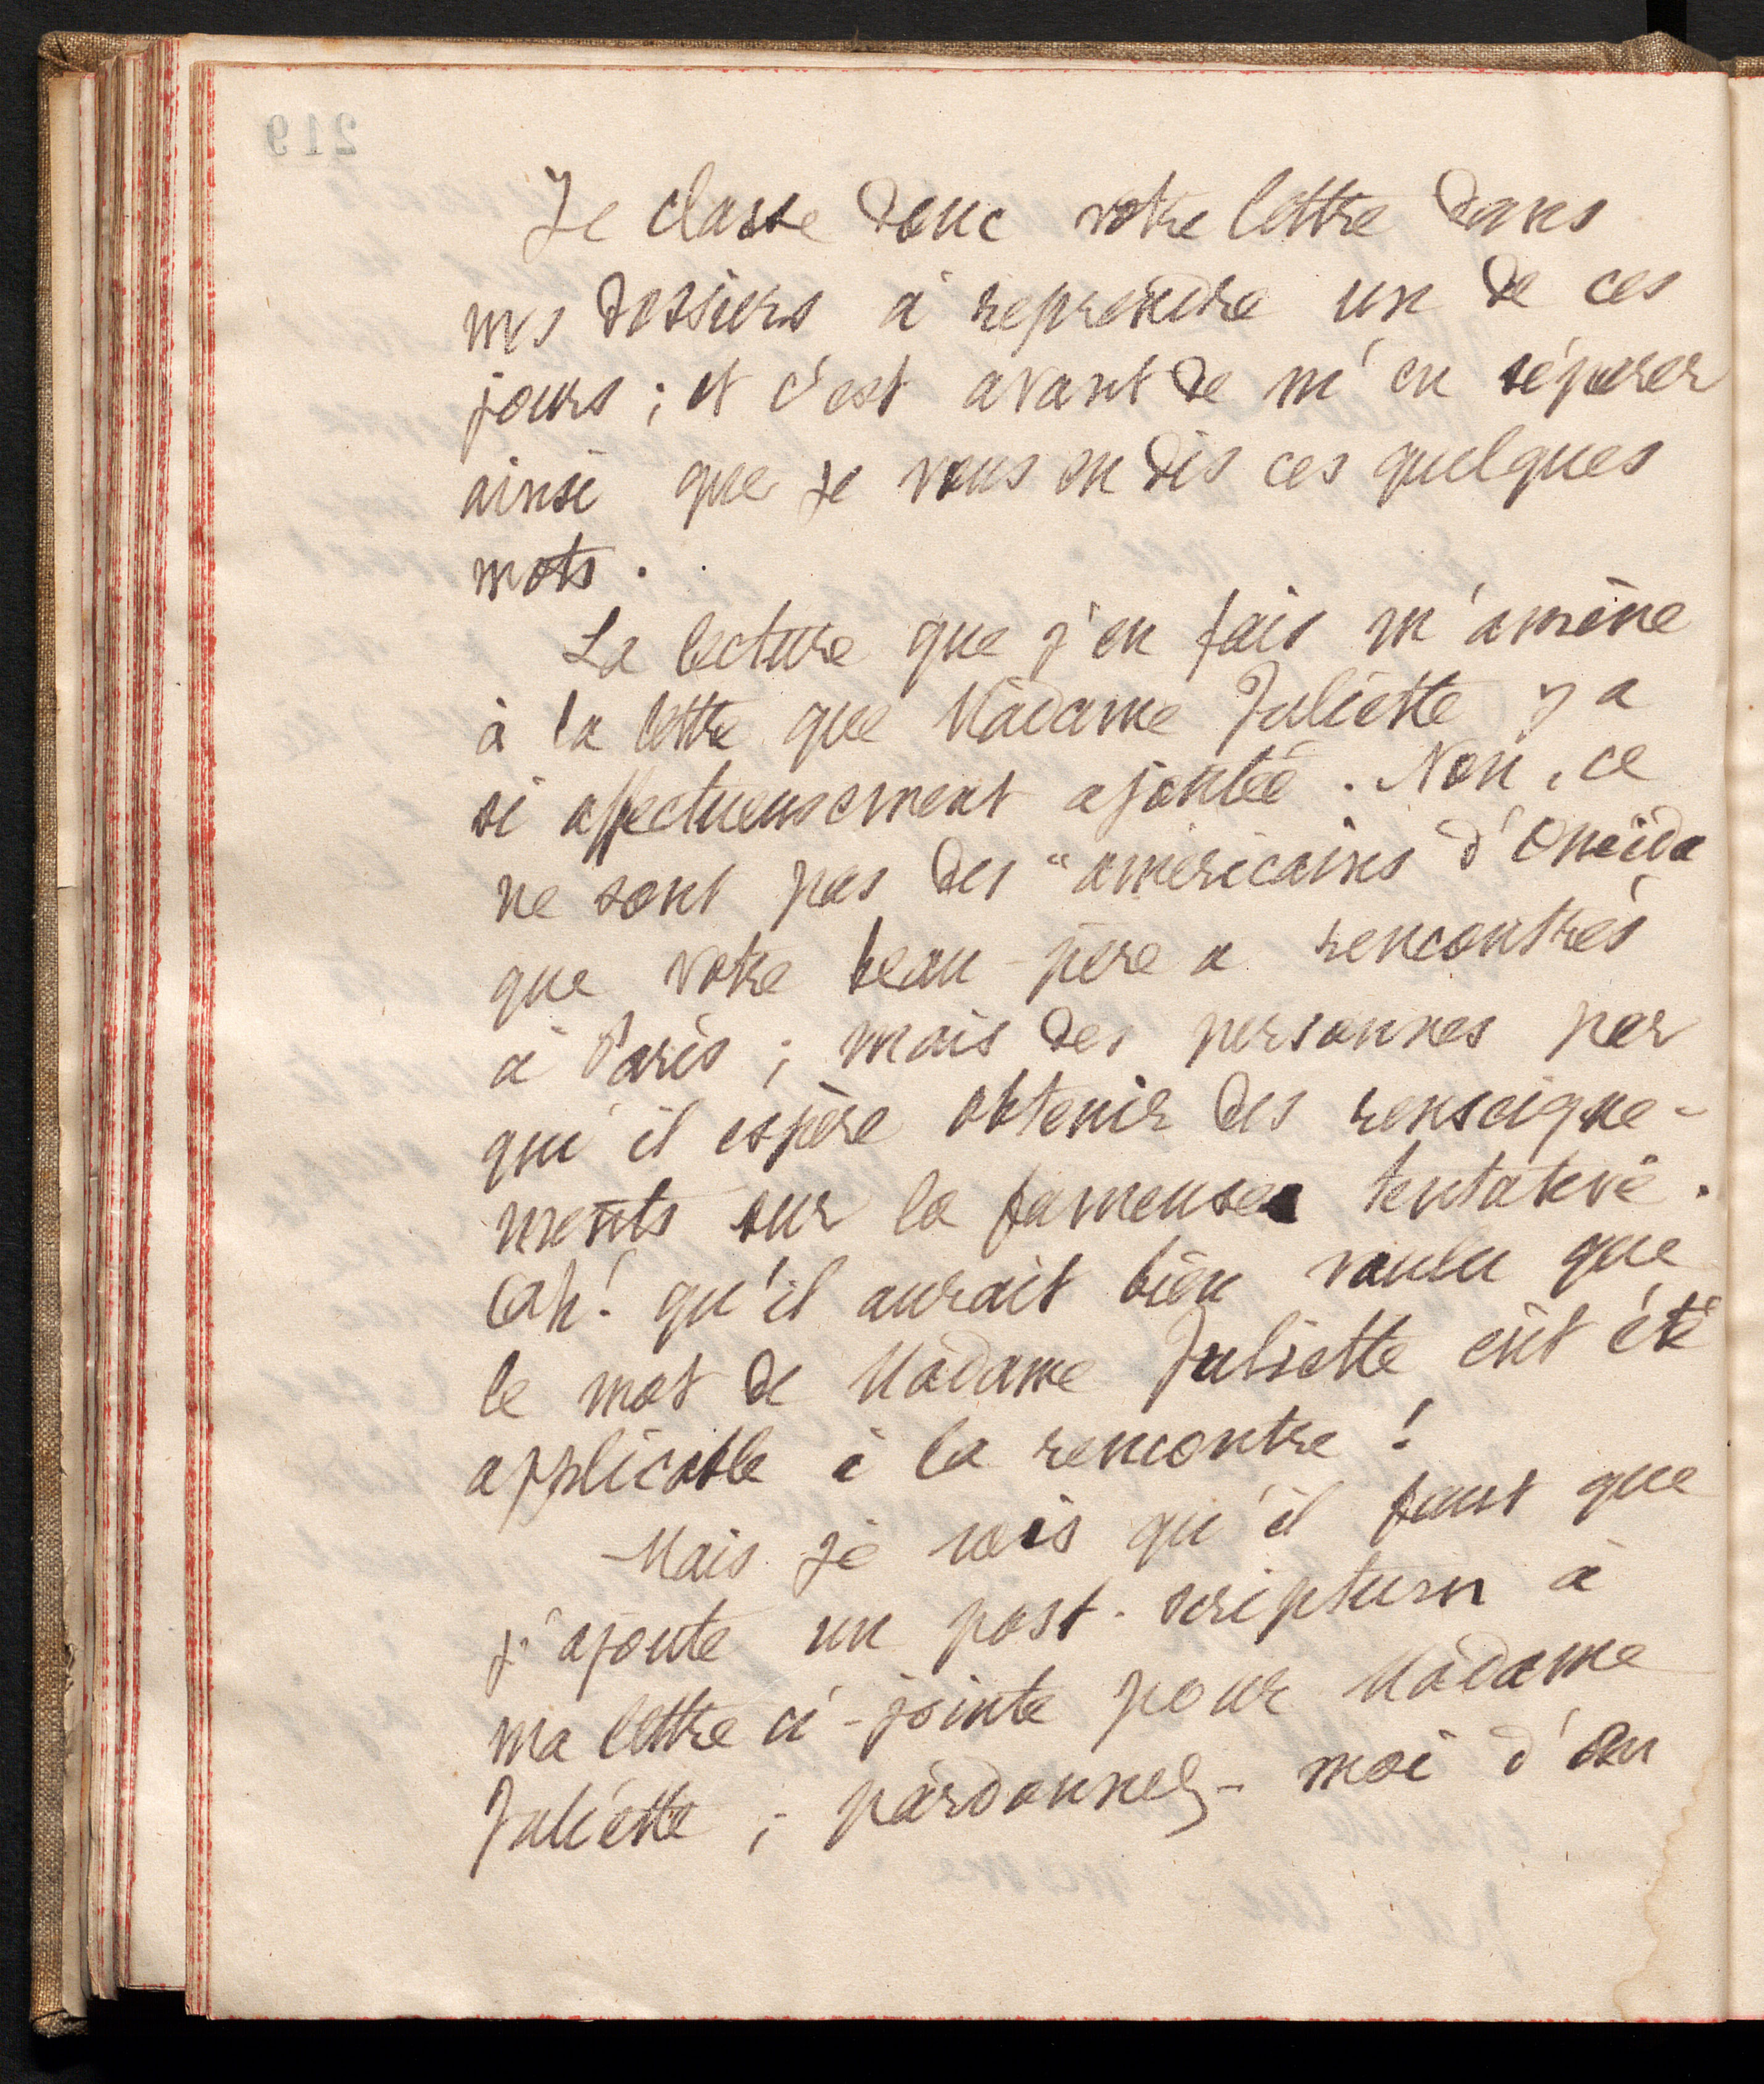 219
Je classe donc votre lettre dans
mes dossiers à reprendre un de ces
jours ; et c'est avant de m'en séparer
ainsi que je vous en dis ces quelques
mots .
La lecture que j'en fais m'amène
à la lettre que Madame Juliette y a
si affectueusement ajoutée . Non , ce
ne sont pas des " américains d'Oneïda
que votre beau-père a rencontrés
à Paris ; mais des personnes par
qui il espère obtenir des renseigne-
ments sur la fameuse tentative .
Ah ! qu'il aurait bien voulu que
le mot de Madame Juliette eût été
applicable à la rencontre !
Mais je vois qu'il faut que
j'ajoute un post-scriptum à
ma lettre ci-jointe pour Madame
Juliette ; pardonnez-moi d'en